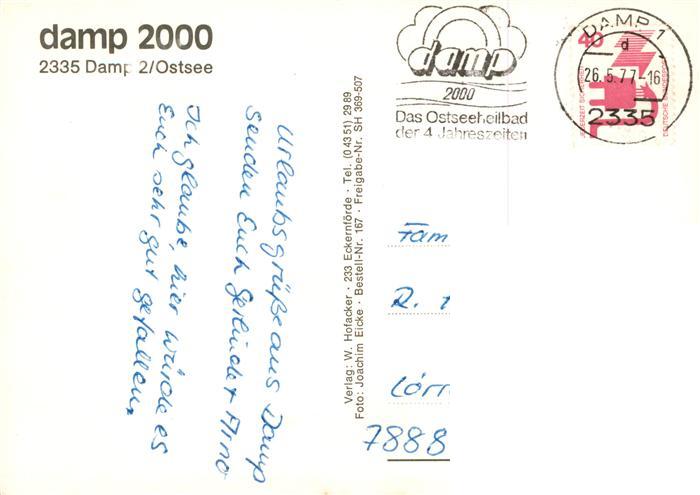 damp 2000
2335 Damp 2/Ostsee
Urlaubsgrüße aus Damp
senden Euch Gerlinde + Arno
Ich glaube, hier würde es
Euch sehr gut gefallen.
Verlag: W. Hofacker · 233 Eckernförde · Tel. (0 43 51) 29 89
Foto: Joachim Eicke · Bestell-Nr. 167 · Freigabe-Nr. SH 369-507
damp
2000
Das Ostseeheilbad
der 4 Jahreszeiten
DAMP 1
d
26.5.77-16
2335
40
JEDERZEIT SICHERHEIT
DEUTSCHE BUNDESPOST
Fam
R.
Lörr
7888